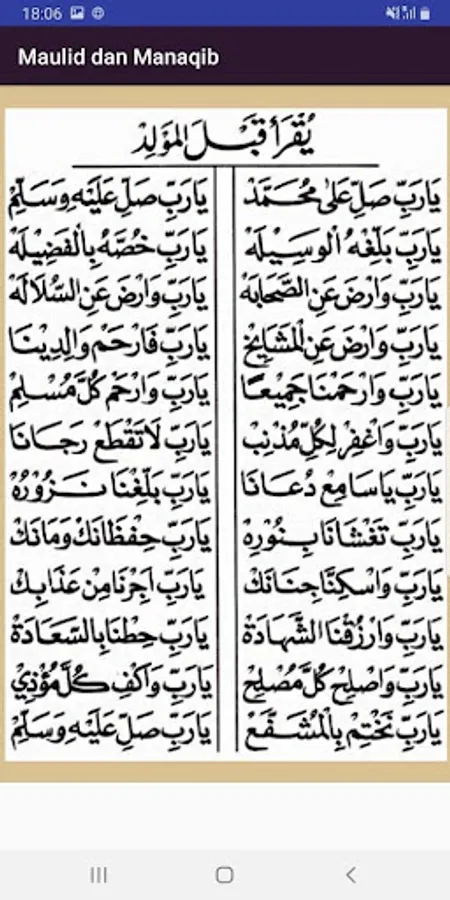 18:06
Maulid dan Manaqib
يُقْرَأُ قَبْلَ المَوْلِدْ
يَارَبِّ صَلِّ عَلىٰ مُحَمَّدْ يَارَبِّ صَلِّ عَلَيْهِ وَسَلِّمْ
يَارَبِّ بَلِّغْهُ الْوَسِيْلَهْ يَارَبِّ خُصَّهُ بِالْفَضِيْلَهْ
يَارَبِّ وَارْضَ عَنِ الصَّحَابَهْ يَارَبِّ وَارْضَ عَنِ السُّلَالَهْ
يَارَبِّ وَارْضَ عَنِ الْمَشَايِخْ يَارَبِّ فَارْحَمْ وَالِدِيْنَا
يَارَبِّ وَارْحَمْنَا جَمِيْعًا يَارَبِّ وَارْحَمْ كُلَّ مُسْلِمْ
يَارَبِّ وَاغْفِرْ لِكُلِّ مُذْنِبْ يَارَبِّ لَا تَقْطَعْ رَجَانَا
يَارَبِّ يَاسَامِعْ دُعَانَا يَارَبِّ بَلِّغْنَا نَزُوْرُهْ
يَارَبِّ تَغْشَانَا بِنُوْرِهْ يَارَبِّ حِفْظَانَكْ وَمَانَكْ
يَارَبِّ وَاسْكِنَّا جِنَانَكْ يَارَبِّ اَجِرْنَا مِنْ عَذَابِكْ
يَارَبِّ وَارْزُقْنَا الشَّهَادَةْ يَارَبِّ حِطْنَا بِالسَّعَادَةْ
يَارَبِّ وَاصْلِحْ كُلَّ مُصْلِحْ يَارَبِّ وَاكْفِ كُلَّ مُؤْذِيْ
يَارَبِّ نَخْتِمْ بِالْمُشَفَّعْ يَارَبِّ صَلِّ عَلَيْهِ وَسَلِّمْ